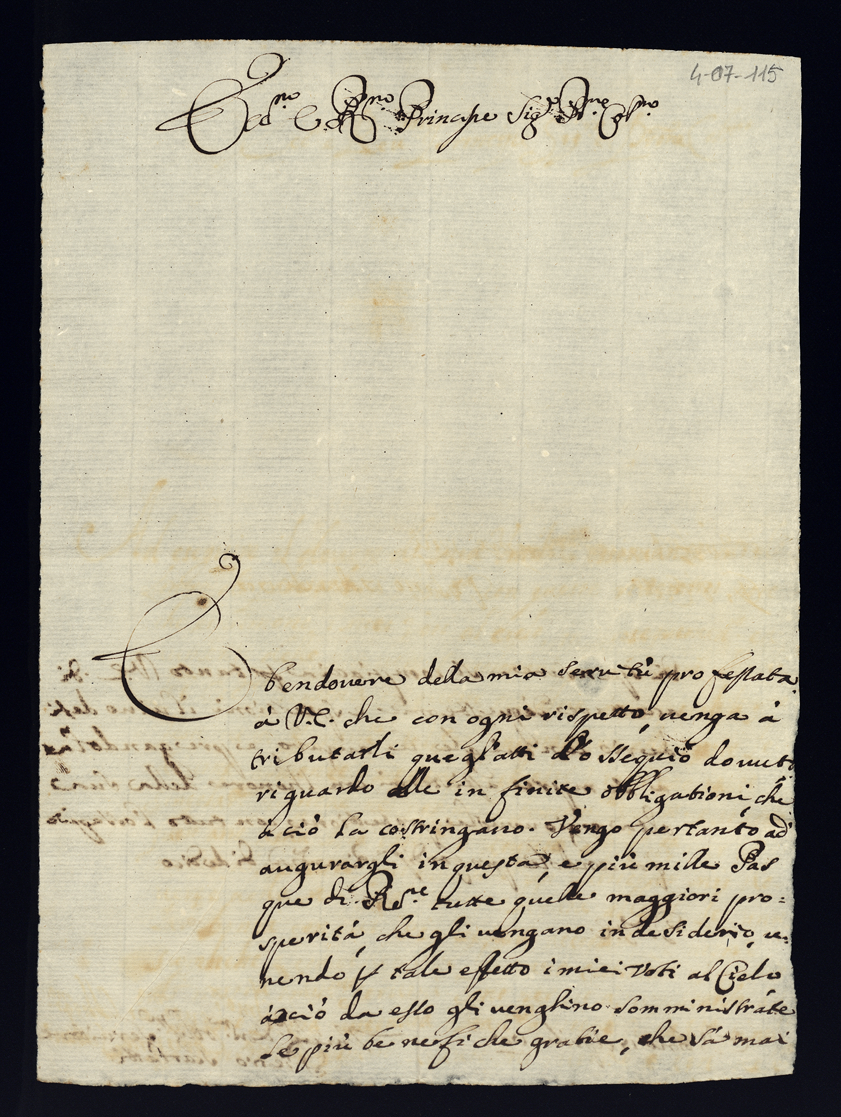 4-07-115
Ecc.mo e R.mo Principe Sig.r P.ne Col.mo
E ben douere della mia seruitù professata
à V.E. che con ogni rispetto, uenga à
tributarli quegl'atti d'ossequio douuto
riguardo alle infinite obbligationi, che
a ciò la costringano. Vengo pertanto ad
augurargli in questa, e più mille Pas
que di Res.ne tutte quelle maggiori pro=
sperità, che gli uengano in desiderio, u-
nendo p tale effetto i miei Voti al Cielo
acciò da esso gli venghino somministrate
le più benefiche gratie, che sà mai